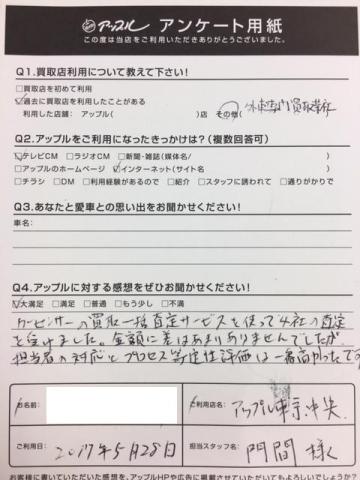 アップル アンケート用紙
この度は当店をご利用いただきありがとうございました。
Q1.買取店利用について教えて下さい!
□買取店を初めて利用
☑過去に買取店を利用したことがある
利用した店舗:アップル( )店 その他(外車専門買取業社
Q2.アップルをご利用になったきっかけは?(複数回答可)
☑テレビCM □ラジオCM □新聞・雑誌(媒体名/ )
□アップルのホームページ ☑インターネット(サイト名 )
□チラシ □DM □利用経験があるので □紹介 □スタッフに誘われて □通りがかりで
Q3.あなたと愛車との思い出をお聞かせください!
車名:
Q4.アップルに対する感想をぜひお聞かせください!
☑大満足 □満足 □普通 □もう少し □不満
カーセンサーの買取一括査定サービスを使って4社の査定
を受けました。金額に差はあまりありませんでしたが、
担当者の対応とプロセス等定性評価は一番高かったです
お名前
ご利用店名 アップル東京中央
ご利用日 2017年5月28日
担当スタッフ名 門間様
お客様に書いていただいた感想を、アップルHPや広告に掲載させていただいてもよろしいでしょうか?